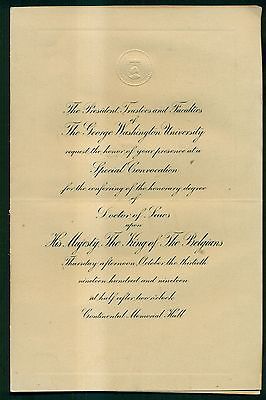 The President, Trustees and Faculties
of
The George Washington University
request the honor of your presence at a
Special Convocation
for the conferring of the honorary degree
of
Doctor of Laws
upon
His Majesty, The King of The Belgians
Thursday afternoon, October the thirtieth
nineteen hundred and nineteen
at half after two o'clock
Continental Memorial Hall